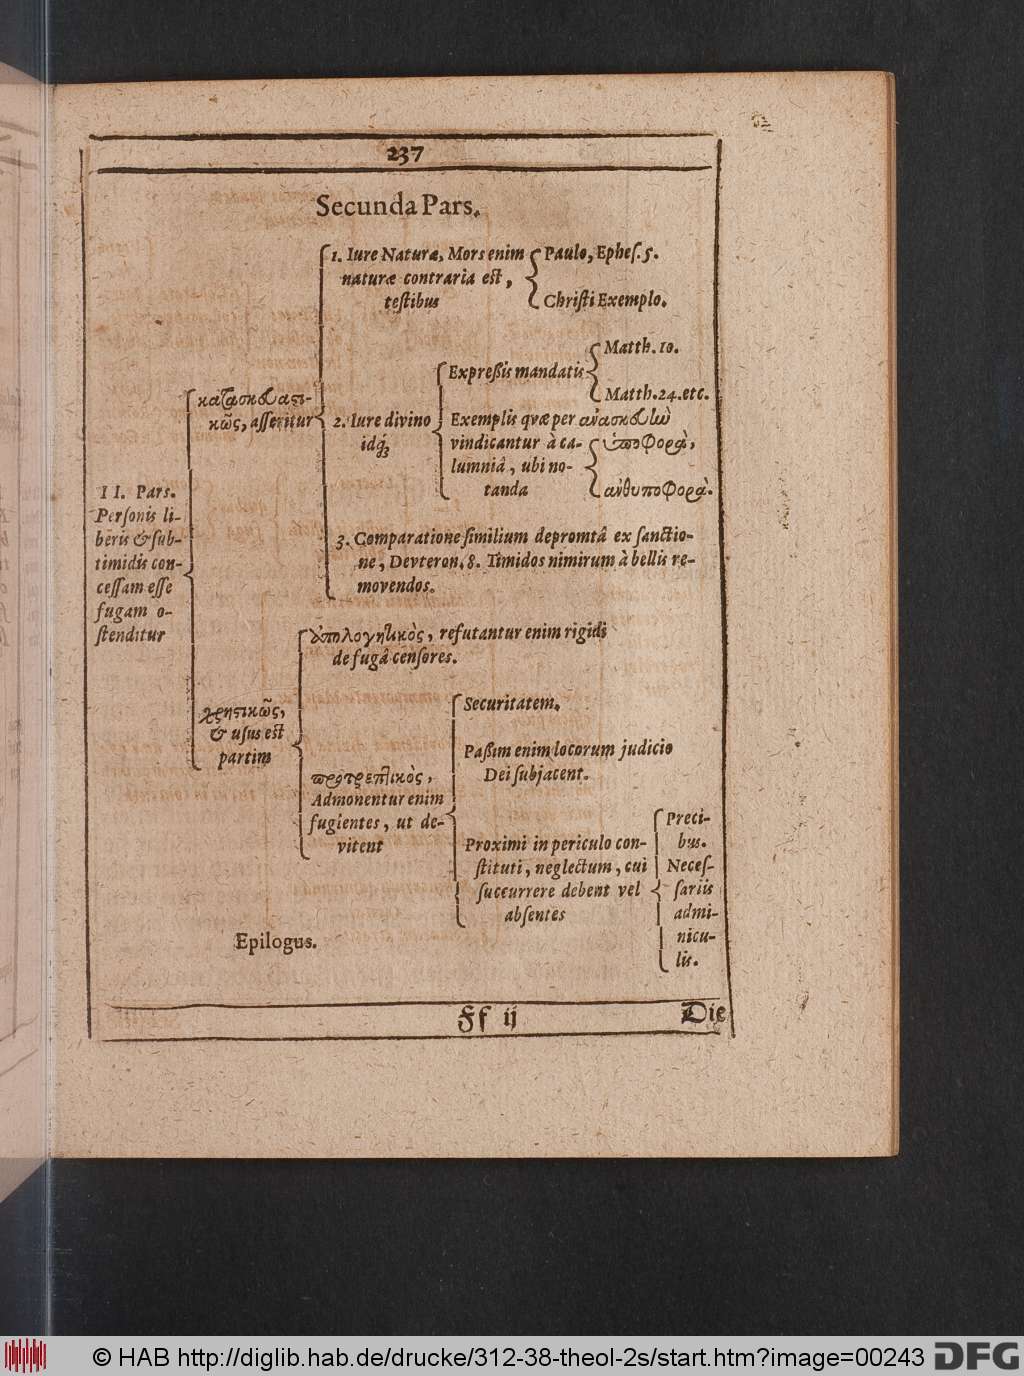 237
Secunda Pars.
II. Pars.
Personis li-
beris & sub-
timidis con-
cessam esse
fugam o-
stenditur
κατασκευαστι-
κῶς, asseritur
1. Iure Naturæ, Mors enim
naturæ contraria est,
testibus
Paulo, Ephes. 5.
Christi Exemplo.
2. Iure divino
idq́;
Expreßis mandatis
Matth. 10.
Matth. 24. etc.
Exemplis qvæ per ἀνασκευὼ
vindicantur à ca-
lumniâ, ubi no-
tanda
ὑποφορὰ,
ἀνθυποφορὰ.
3. Comparatione similium depromtâ ex sanctio-
ne, Devteron. 8. Timidos nimirum à bellis re-
movendos.
χρηστικῶς,
& usus est
partim
ἀπολογητικὸς, refutantur enim rigidi
de fugâ censores.
προτρεπτικὸς,
Admonentur enim
fugientes, ut de-
vitent
Securitatem.
Paßim enim locorum judicio
Dei subjacent.
Proximi in periculo con-
stituti, neglectum, cui
succurrere debent vel
absentes
Preci-
bus.
Neces-
sariis
admi-
nicu-
lis.
Epilogus.
Ff ij
Die
© HAB http://diglib.hab.de/drucke/312-38-theol-2s/start.htm?image=00243
DFG